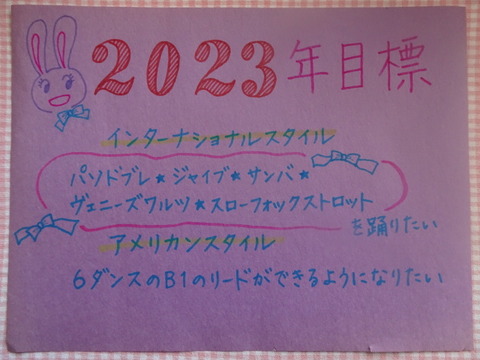 2023年目標
インターナショナルスタイル
パソドブレ★ジャイブ★サンバ★
ヴェニーズワルツ★スローフォックストロット
を踊りたい
アメリカンスタイル
6ダンスのB1のリードができるようになりたい